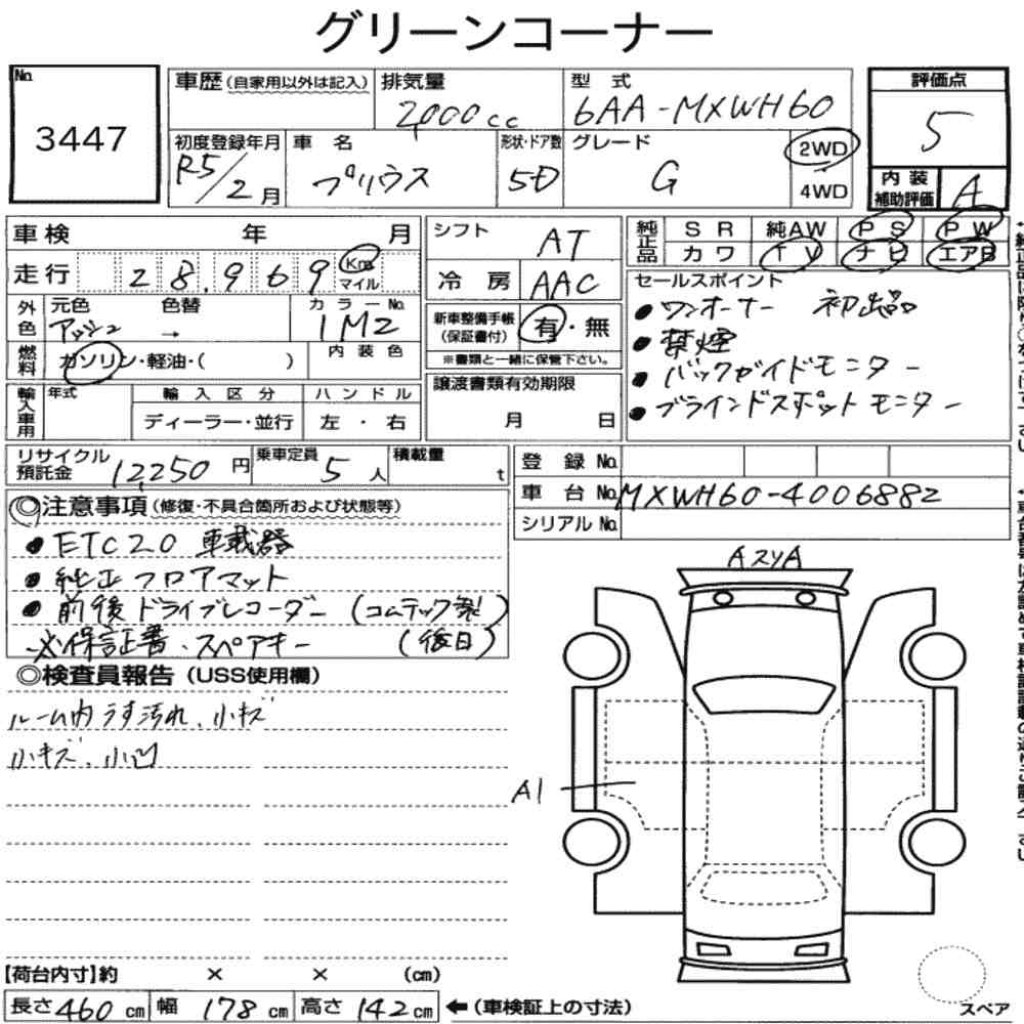 グリーンコーナー
No.
3447
車歴(自家用以外は記入)
排気量
2,000cc
型 式
6AA-MXWH60
評価点
5
初度登録年月
R5/2月
車 名
プリウス
形状・ドア数
5D
グレード
G
2WD
4WD
内装
補助評価
A
車検 年 月
走行 28,969 Km マイル
外色
元色 色替
アッシュ →
カラーNo.
1M2
燃料
ガソリン・軽油・( )
内装色
輸入車用
年式
輸入区分
ディーラー・並行
ハンドル
左・右
シフト
AT
冷房
AAC
新車整備手帳
(保証書付)
有・無
※書類と一緒に保管下さい。
譲渡書類有効期限
月 日
純正品
SR 純AW PS PW
カワ TV ナビ エアB
セールスポイント
●ワンオーナー 初出品
●禁煙
●バックガイドモニター
●ブラインドスポットモニター
リサイクル
預託金
12,250円
乗車定員
5人
積載量
t
登録No.
車台No. MXWH60-4006882
シリアルNo.
◎注意事項(修復・不具合箇所および状態等)
●ETC2.0 車載器
●純正フロアマット
●前後ドライブレコーダー(コムテック製)
※保証書・スペアキー(後日)
◎検査員報告(USS使用欄)
ルーム内うす汚れ、小キズ
小キズ、小凹
AスリA
A1
【荷台内寸】約 × × (cm)
長さ460cm 幅178cm 高さ142cm
←(車検証上の寸法)
スペア